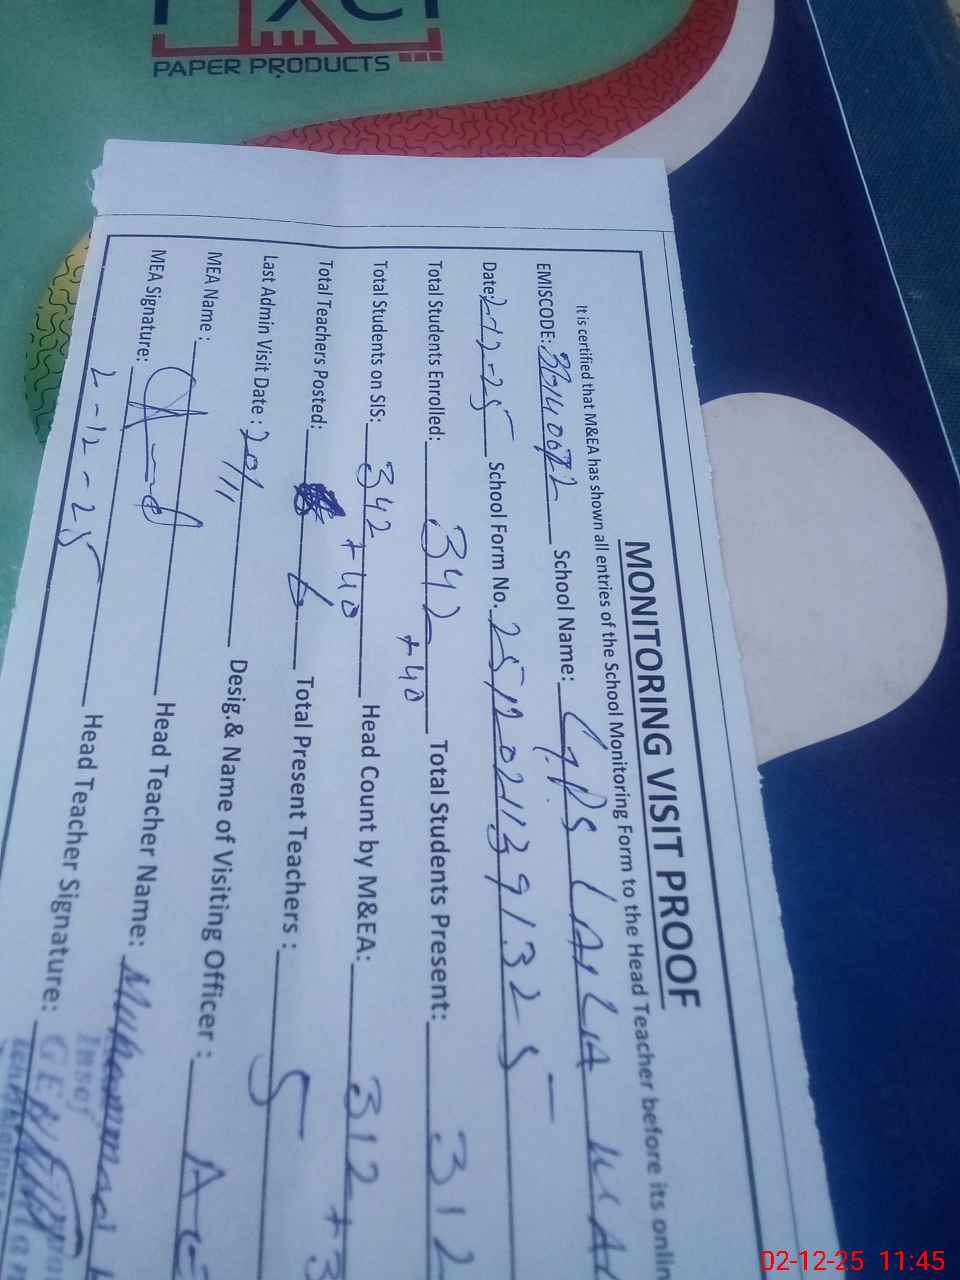 PAPER PRODUCTS
MONITORING VISIT PROOF
It is certified that M&EA has shown all entries of the School Monitoring Form to the Head Teacher before its onlin
EMISCODE: School Name: G.P.S
Date: 2-12-25 School Form No. 25120211391325
Total Students Enrolled: 342 + 40 Total Students Present: 312
Total Students on SIS: 342 + 40 Head Count by M&EA: 312 + 3
Total Teachers Posted: 6 Total Present Teachers : 5
Last Admin Visit Date : 20/11 Desig.& Name of Visiting Officer :
MEA Name : Head Teacher Name: Muhammad
MEA Signature: Head Teacher Signature:
2-12-25
02-12-25 11:45